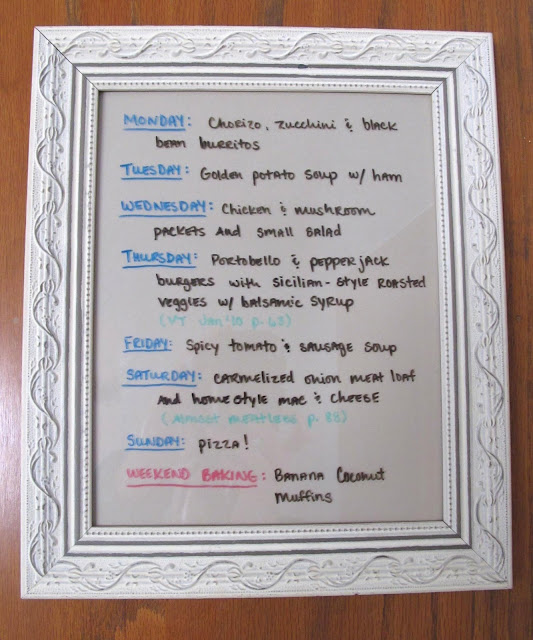 MONDAY: Chorizo, zucchini & black
bean burritos
TUESDAY: Golden potato soup w/ ham
WEDNESDAY: Chicken & mushroom
packets and small salad
THURSDAY: Portobello & pepperjack
burgers with sicilian-style roasted
veggies w/ balsamic syrup
(VT Jan '10 p. 63)
FRIDAY: Spicy tomato & sausage soup
SATURDAY: carmelized onion meat loaf
and homestyle mac & cheese
(Almost meatless p. 88)
SUNDAY: pizza!
WEEKEND BAKING: Banana Coconut
muffins